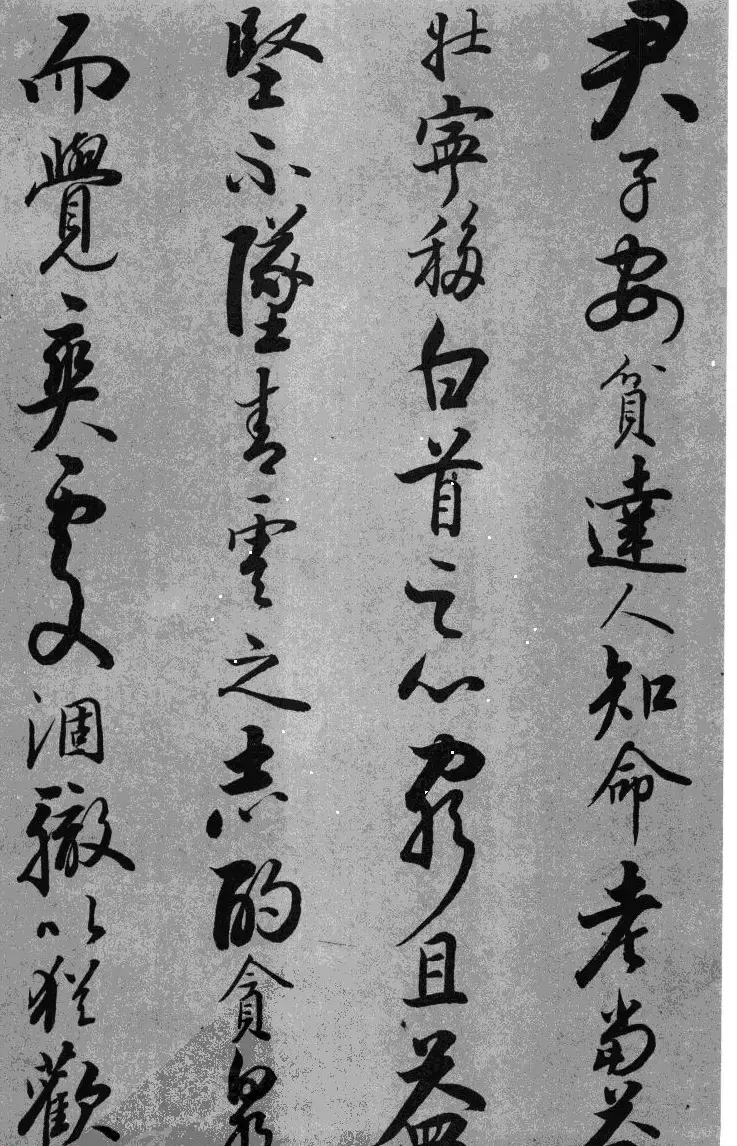 君子安貧達人知命老當益
壯寧移白首之心窮且益
堅不墜青雲之志酌貪泉
而覺爽處涸轍以猶歡